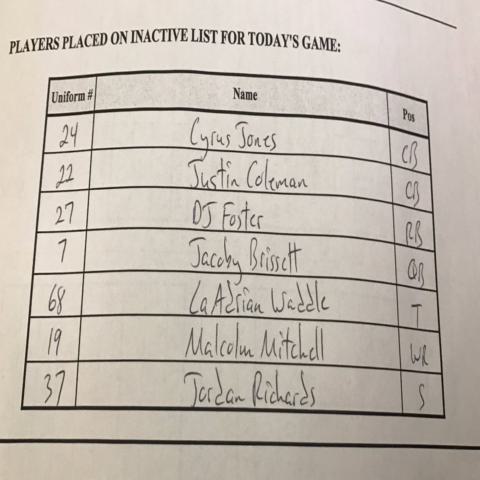 PLAYERS PLACED ON INACTIVE LIST FOR TODAY'S GAME:
Uniform # Name Pos
24 Cyrus Jones CB
22 Justin Coleman CB
27 DJ Foster RB
7 Jacoby Brissett QB
68 LaAdrian Waddle T
19 Malcolm Mitchell WR
37 Jordan Richards S